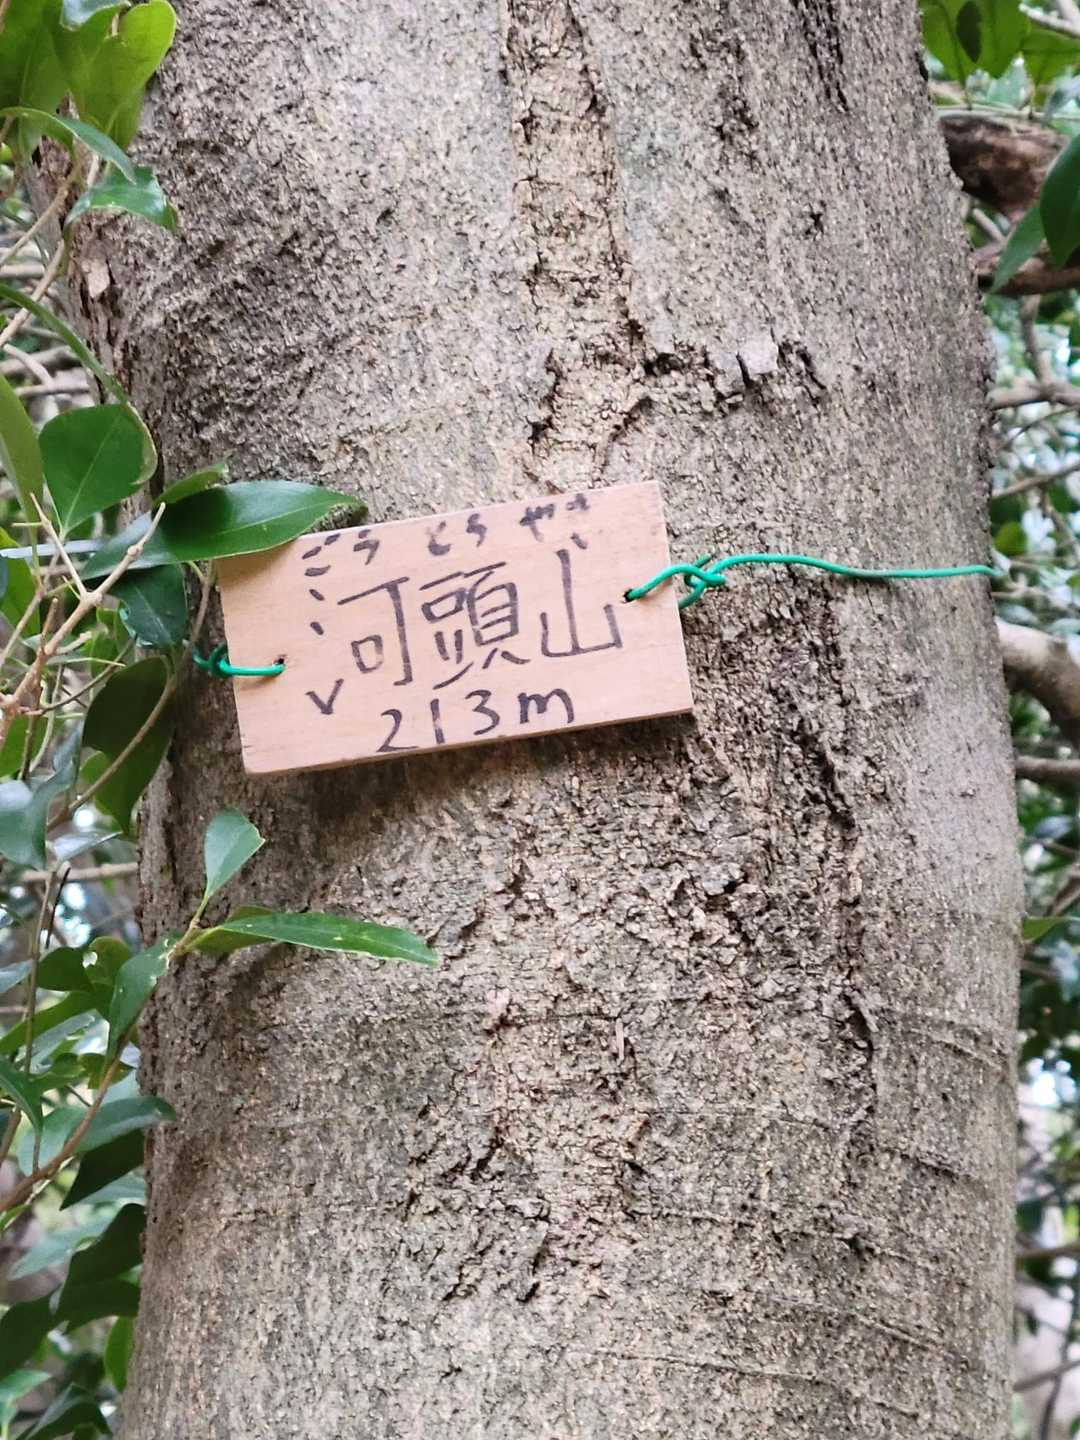 ごうとうやま
河頭山
213m